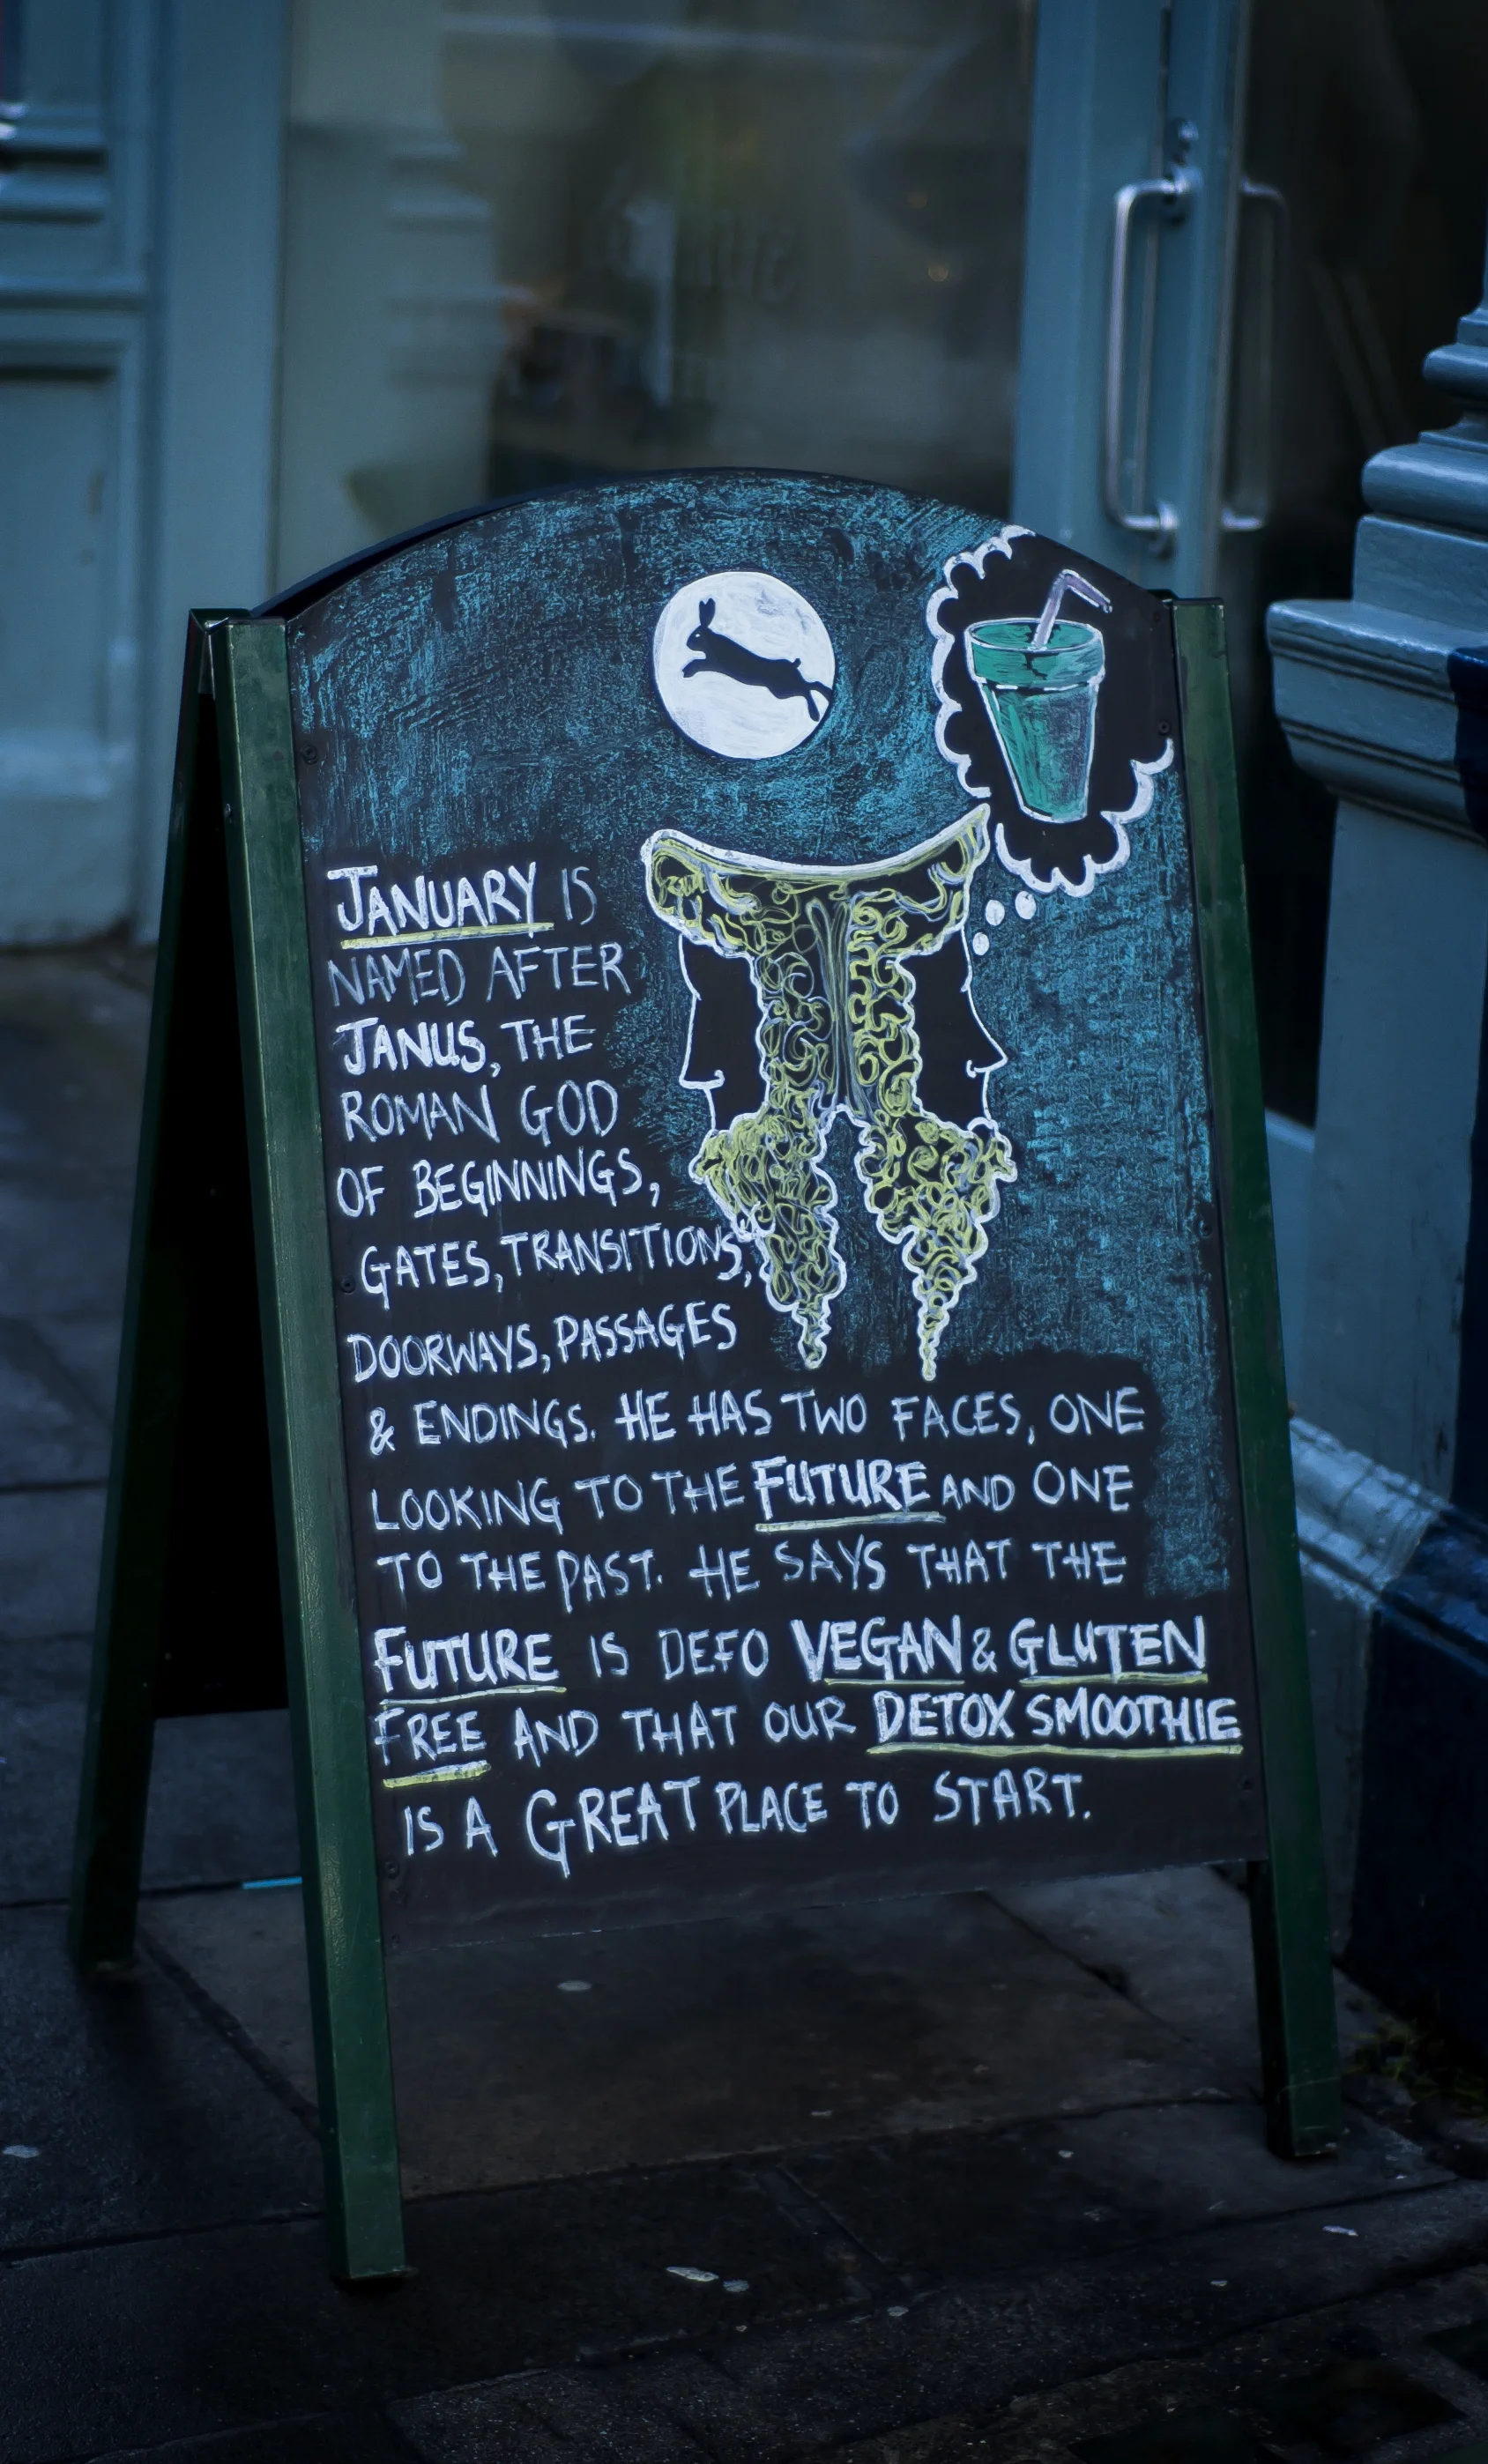 JANUARY IS
NAMED AFTER
JANUS, THE
ROMAN GOD
OF BEGINNINGS,
GATES, TRANSITIONS,
DOORWAYS, PASSAGES
& ENDINGS. HE HAS TWO FACES, ONE
LOOKING TO THE FUTURE AND ONE
TO THE PAST. HE SAYS THAT THE
FUTURE IS DEFO VEGAN & GLUTEN
FREE AND THAT OUR DETOX SMOOTHIE
IS A GREAT PLACE TO START.